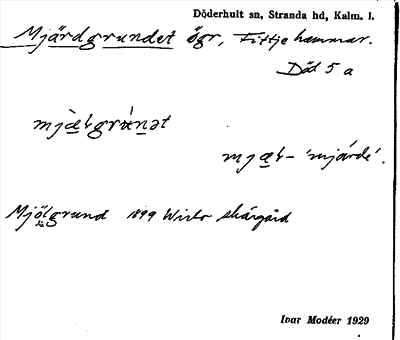 Döderhult sn, Stranda hd, Kalm. l.
Mjärdgrundet ögr, Fittjehammar.
Död 5 a
mjæ̀ɫgrʉ́nət
mjæɫ- 'mjärde'.
Mjölgrund 1899 Wirbo skärgård
Ivar Modéer 1929